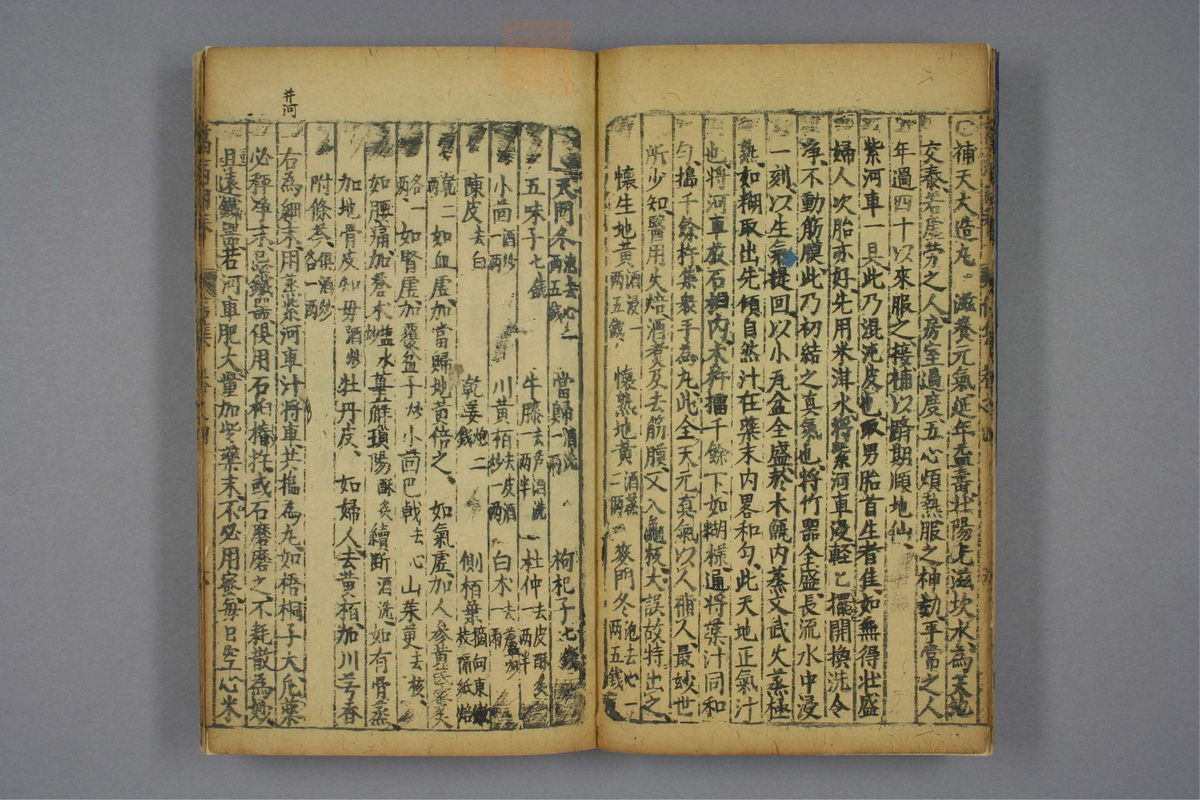 補天大造丸 滋養元氣延年益壽壯陽元滋坎水為天地
交泰若虛勞之人房室過度五心煩熱服之神効平常之人
年過四十以來服之接補以躋期頤地仙
紫河車一具此乃混沌皮也取男胎首生者佳如無得壯盛
婦人次胎亦好先用米泔水將紫河車浸輕乀擺開換洗令
净不動筋膜此乃初結之真氣也將竹器全盛長流水中浸
一刻以生氣提回以小瓦盆全盛於木甑內蒸文武火蒸極
熟如糊取出先傾自然汁在藥末內畧和勻此天地正氣汁
也將河車放石臼內木杵擂千餘下如糊樣通將藥汁同和
勻搗千餘杵集衆手為丸此全天元真氣以人補人最妙世
所少知醫用火焙酒煑及去筋膜又入龜板大誤故特出之
懷生地黃酒浸一兩五錢 懷熟地黃酒蒸二兩 麥門冬泡去心一兩五錢
天門冬泡去心一兩五錢 當歸酒洗一兩 枸杞子七錢
五味子七錢 牛膝去芦酒洗一兩半 杜仲去皮酥炙一兩半
小茴酒炒一兩 川黃栢去皮酒炒一兩 白术去蘆炒一兩
陳皮去白 乾姜炮二錢 側栢葉摘向東枝隔紙焙
如血虛加當歸地黃倍之 如氣虛加人參黃芪蜜炙
各一兩 如腎虛加覆盆子炒小茴巴戟去心山茱萸去核
如腰痛加蒼术鹽水炒萆薢瑣陽酥炙續斷酒洗如有骨蒸
加地骨皮知母酒炒牡丹皮 如婦人去黃栢加川芎香
附條芩俱酒炒各一兩
右為細末用蒸紫河車汁將車共搗為丸如梧桐子大凡藥
必秤净末忌鐵器俱用石臼楮杵或石磨磨之不耗散為妙
且遠鐵器若河車肥大量加些藥末不必用蜜每日空心米
井河